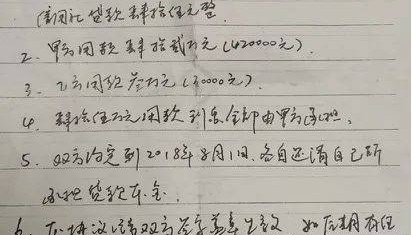 信用社贷款肆拾伍万元整
2. 甲方用款肆拾贰万元(420000元).
3. 乙方用款叁万元(30000元).
4. 肆拾伍万元用款利息全部由甲方承担.
5. 双方约定到2018年8月1日,各自还清自己所
承担贷款本金.
6. 本协议请双方签字盖章生效